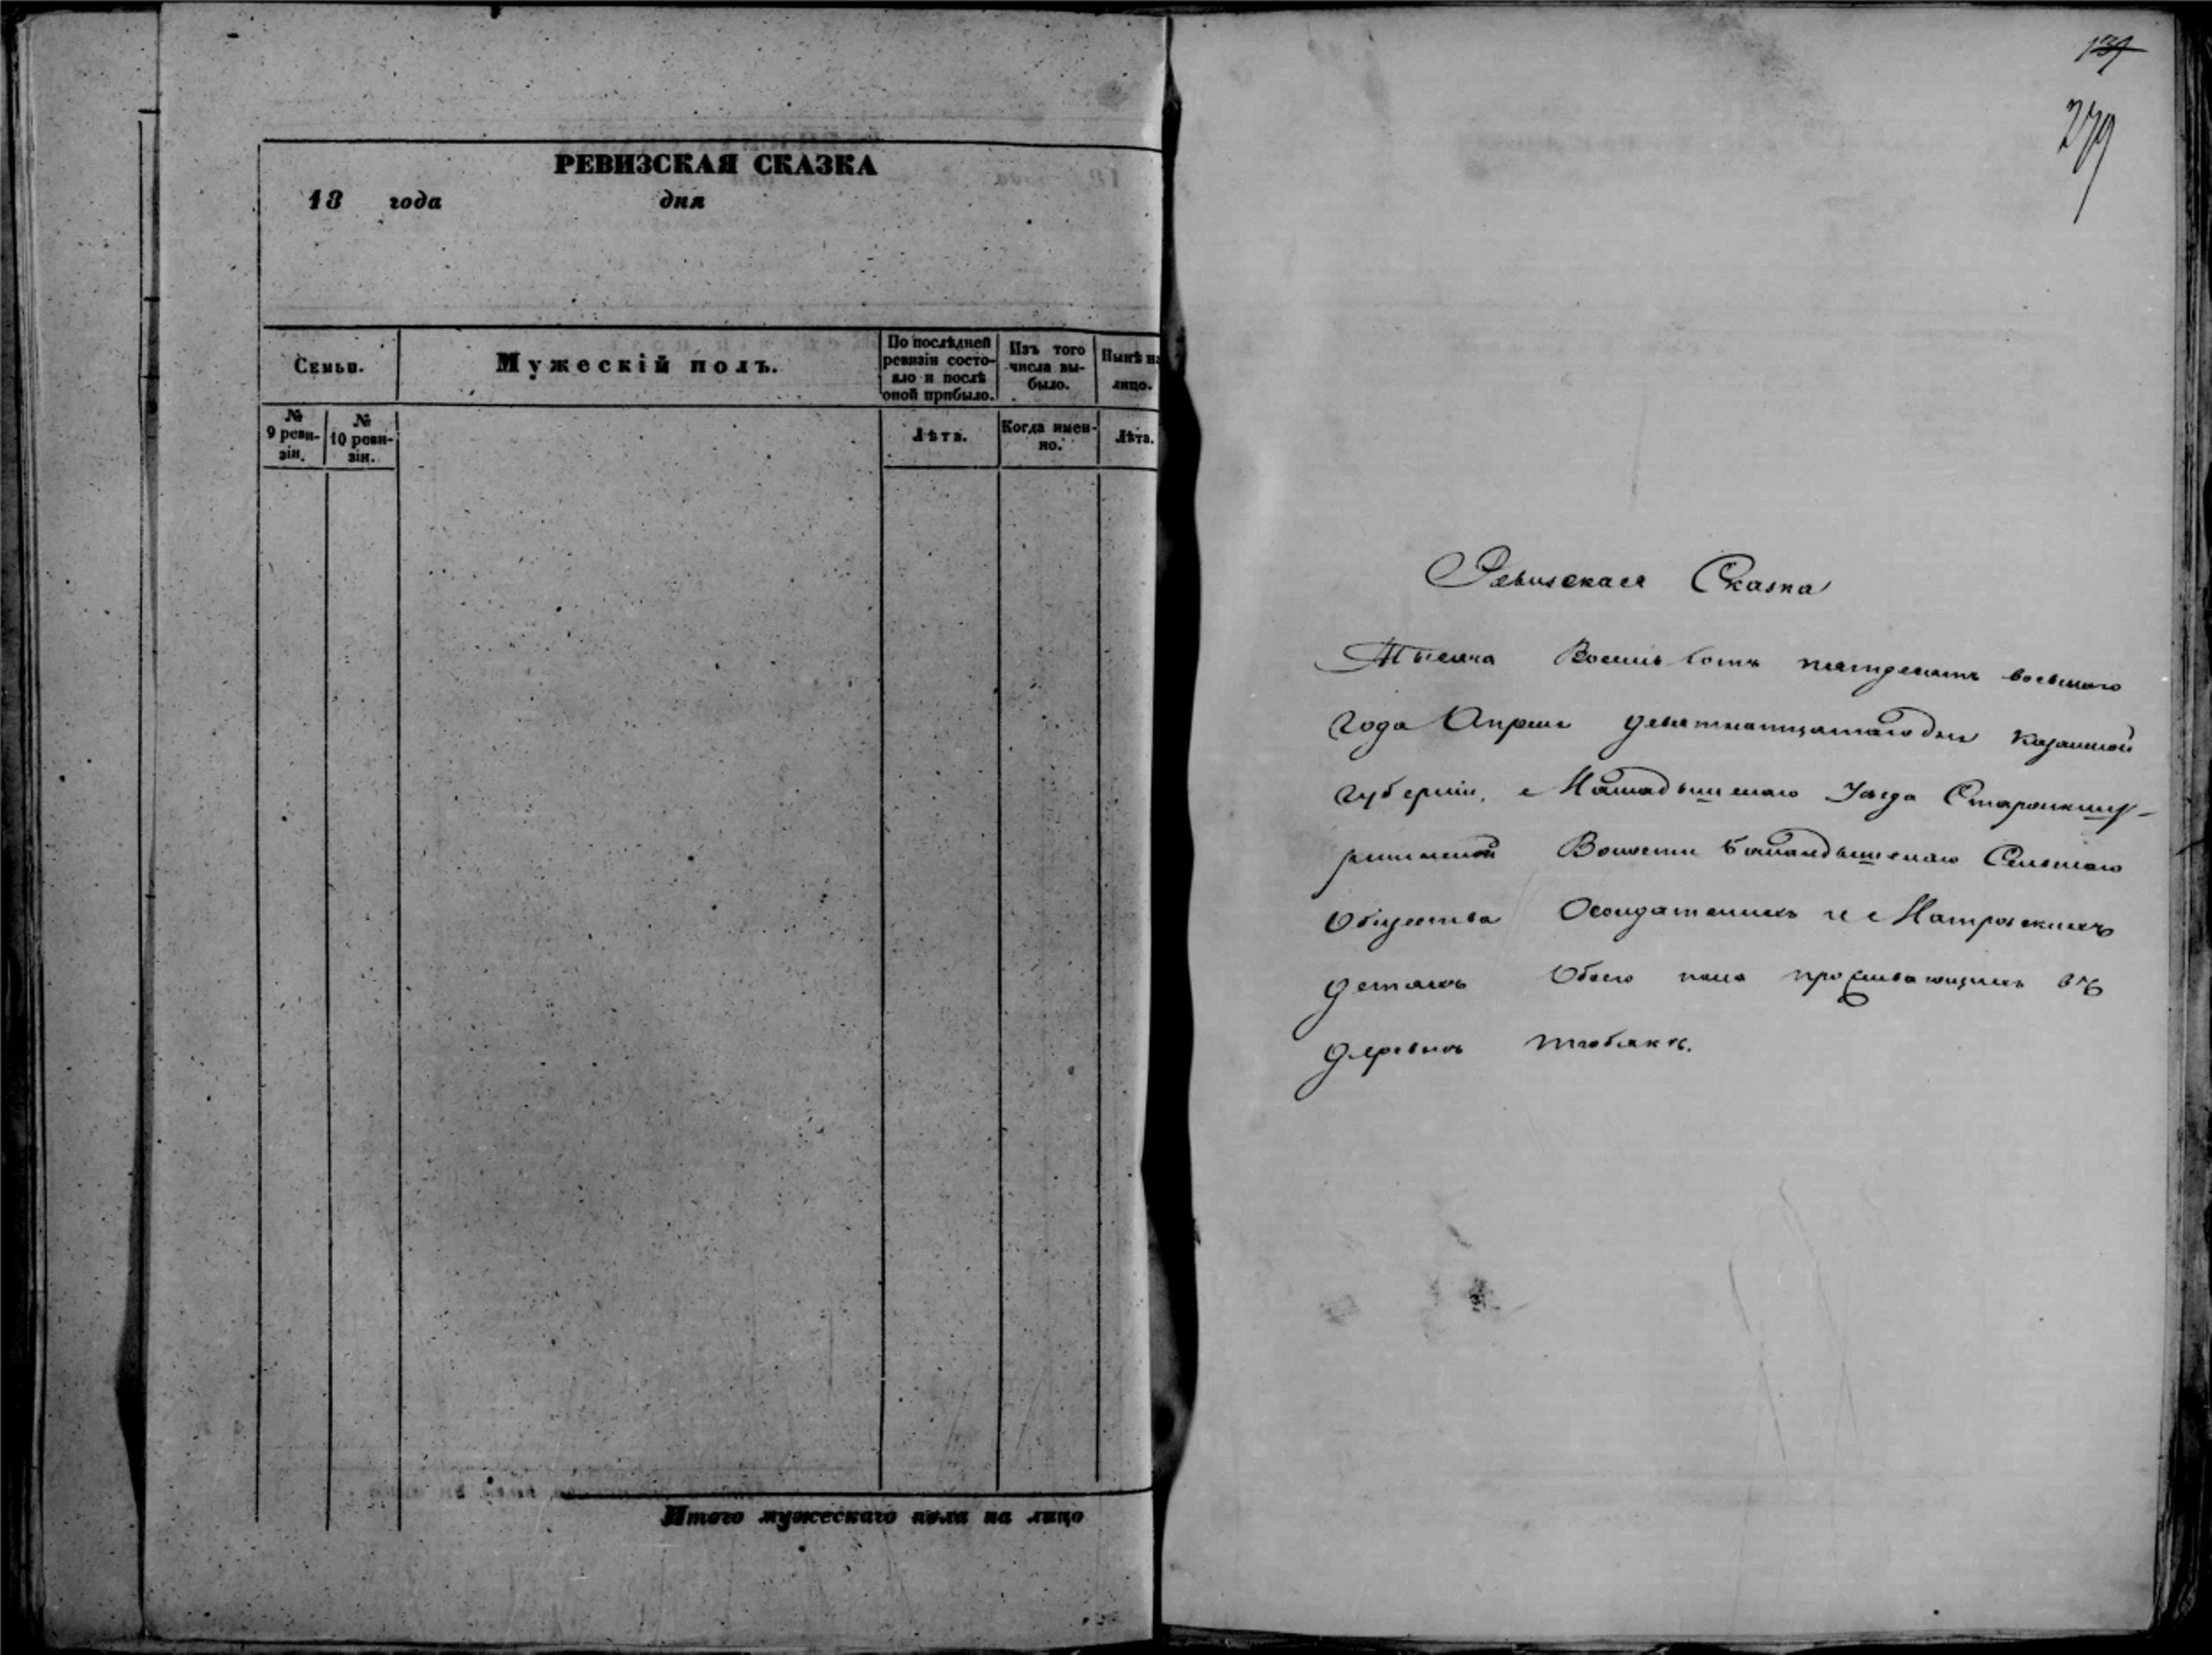 РЕВИЗСКАЯ СКАЗКА
18 года дня
Семьи.
Мужескій полъ.
По послѣдней
ревизіи состо-
яло и послѣ
оной прибыло.
Изъ того
числа вы-
было.
Нынѣ на
лицо.
№
9 реви-
зіи.
№
10 реви-
зіи.
Лѣта.
Когда имен-
но.
Лѣта.
Итого мужескаго пола на лицо
139
279
Ревизская Сказка
Тысяча Восемьсотъ пятдесятъ восьмаго
года Апреля девятнатцатаго дня Казанской
губерніи, Мамадышскаго Уезда
Волости Сельскаго
Общества Солдатскихъ и Матроскихъ
детяхъ Обоего пола проживающихъ въ
деревнѣ Тюбякъ.